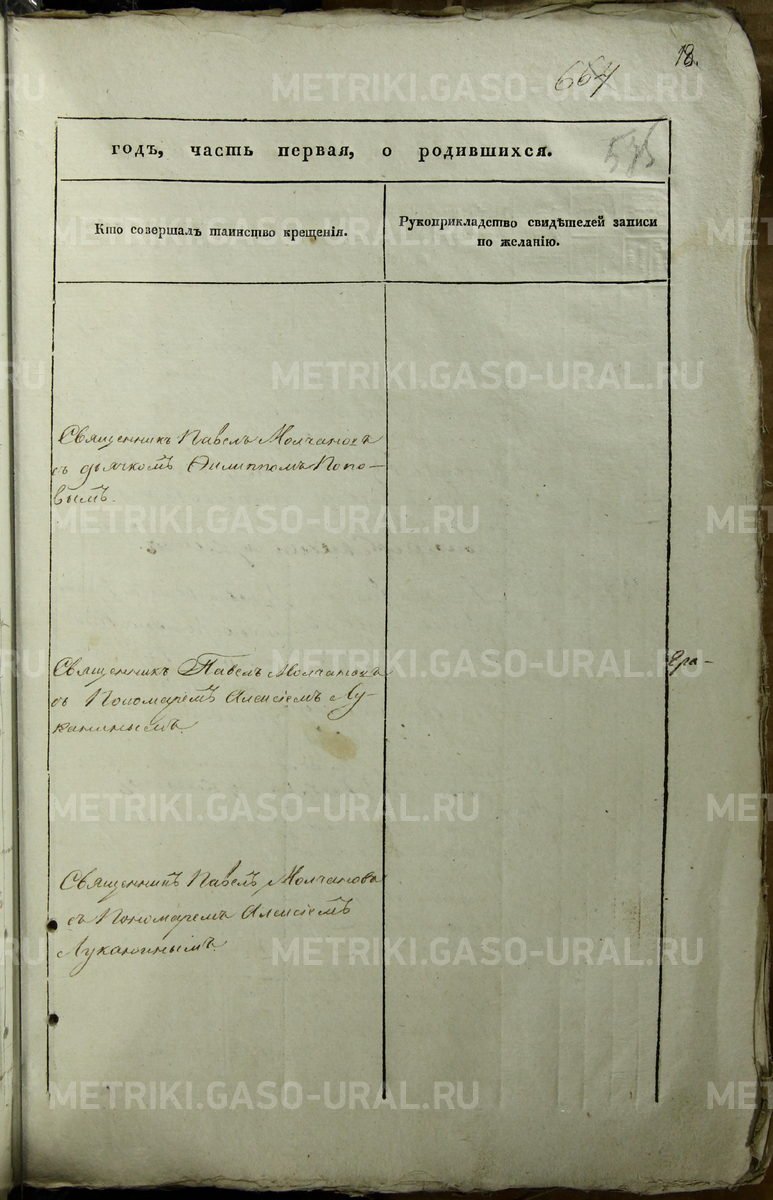 18.
664
575
годъ, часть первая, о родившихся.
Кто совершалъ таинство крещенія.
Рукоприкладство свидѣтелей записи
по желанію.
Священникъ Павелъ Молчановъ
съ дьячкомъ Филиппомъ Попо-
вымъ.
Священникъ Павелъ Молчановъ
съ Пономаремъ Алексіемъ Лу-
канинымъ.
Ера-
Священникъ Павелъ Молчановъ
съ Пономаремъ Алексіемъ
Луканинымъ.
METRIKI.GASO-URAL.RU
METRIKI.GASO-URAL.RU
METRIKI.GASO-URAL.RU
METRIKI.GASO-URAL.RU
METRIKI.GASO-URAL.RU
METRIKI.GASO-URAL.RU
METRIKI.GASO-URAL.RU
METRIKI.GASO-URAL.RU